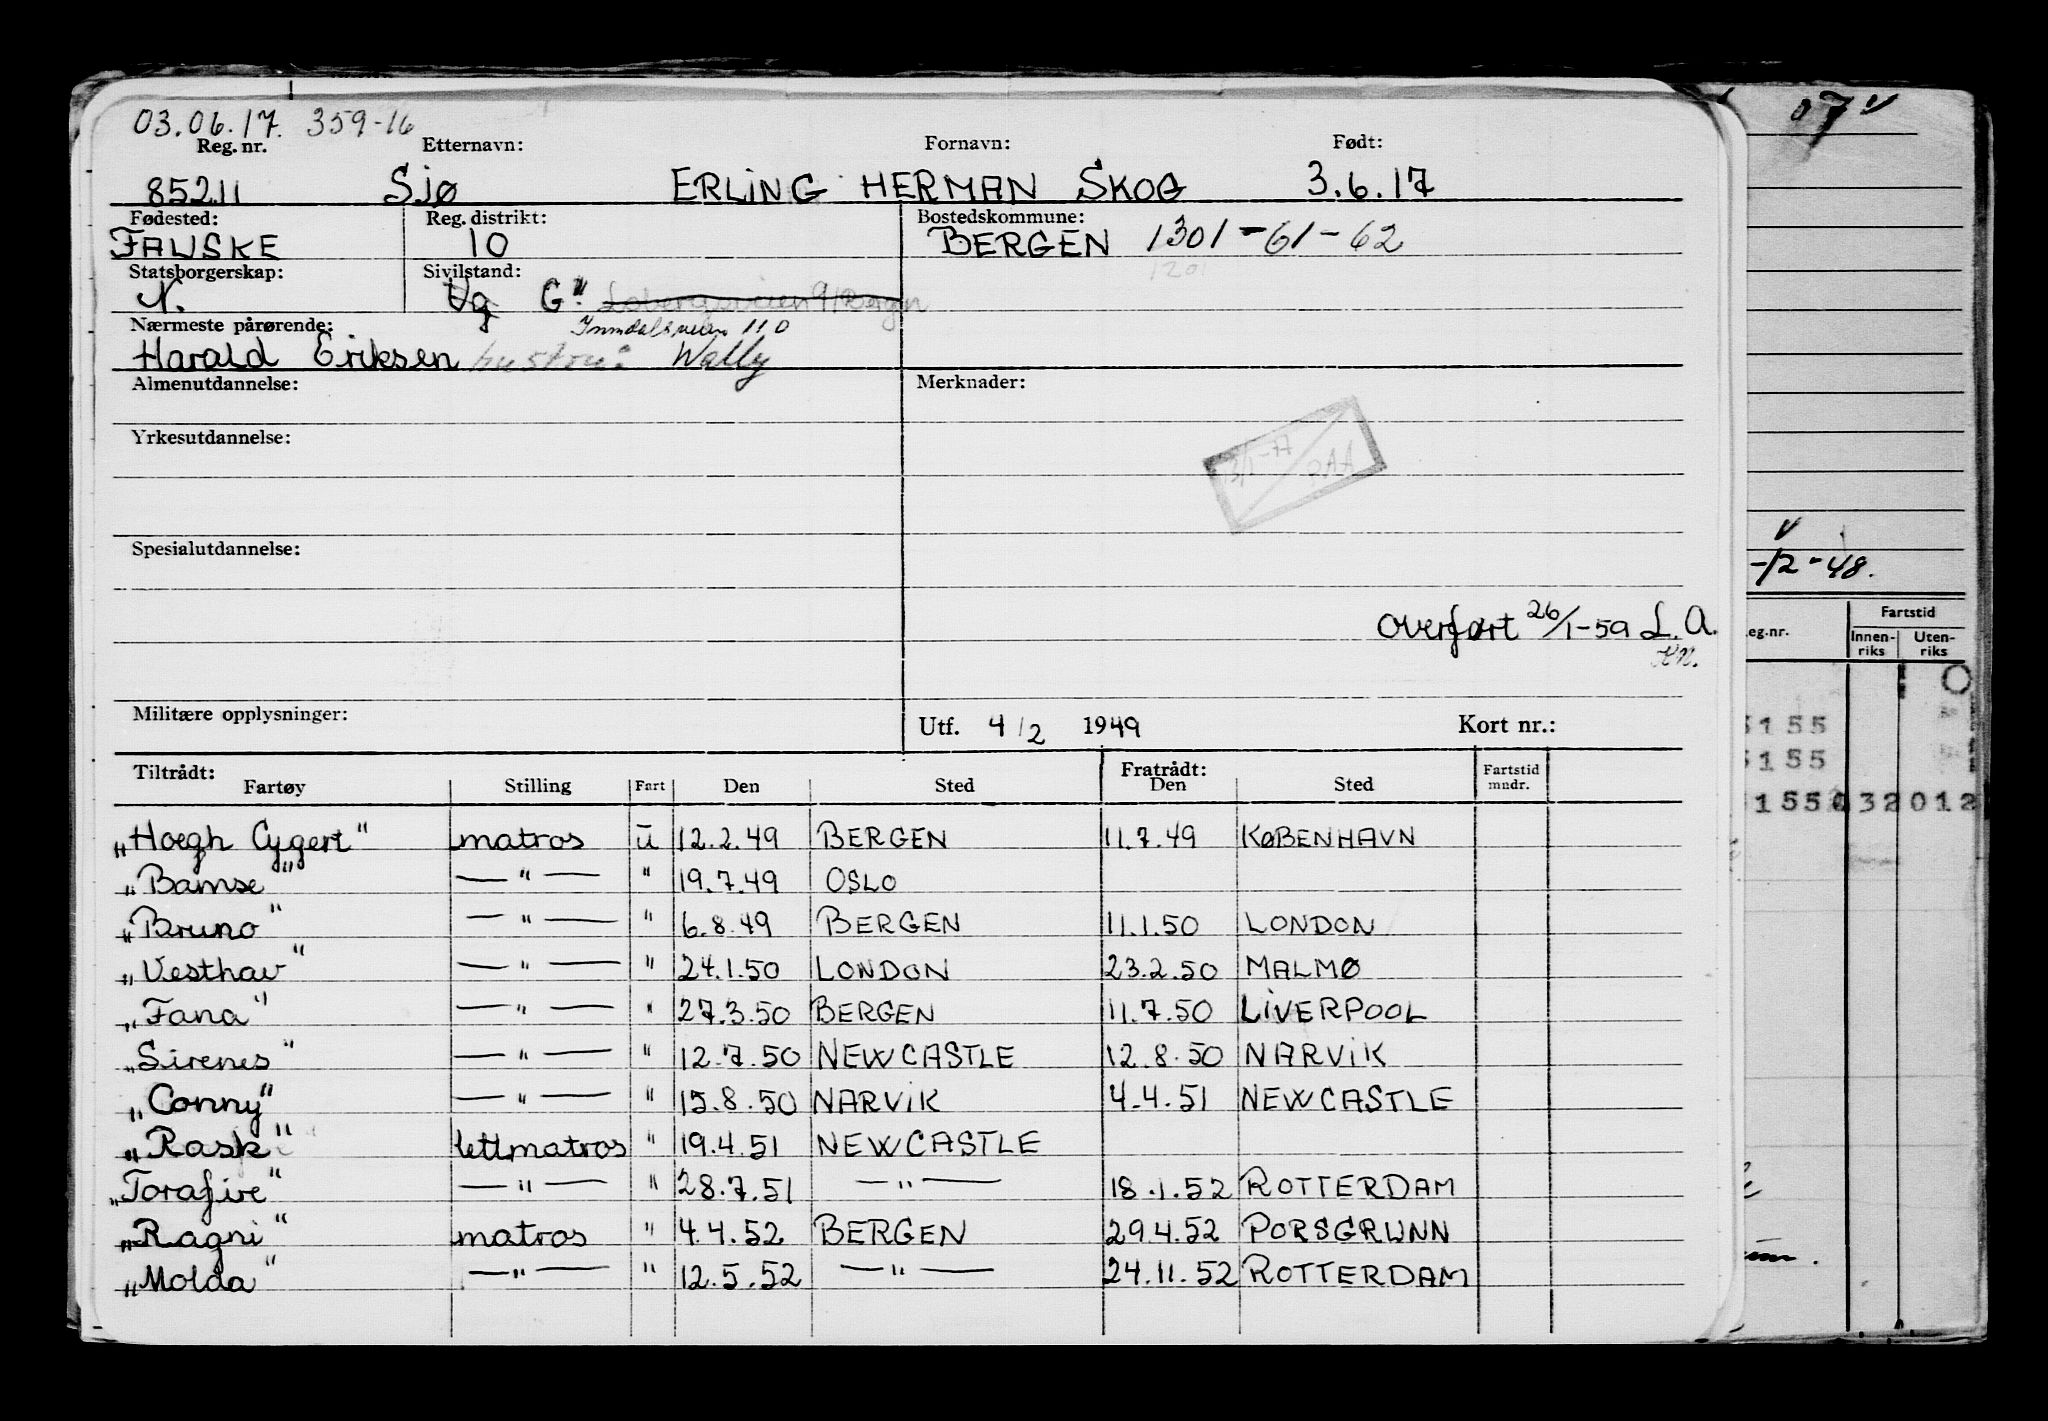 03.06.17. 359-16
Reg. nr. Etternavn: Fornavn: Født:
85211 SJØ ERLING HERMAN SKOG 3.6.17
Fødested: Reg. distrikt: Bostedskommune:
FAUSKE 10 BERGEN 1301-61-62
1201
Statsborgerskap: Sivilstand:
N. Ug G."
Nærmeste pårørende: Inndalsveien 110
Harald Eriksen hustru: Wally
Almenutdannelse: Merknader:
Yrkesutdannelse:
13/1-77
Spesialutdannelse:
Overført 26/1-59 L.A.
Militære opplysninger: Utf. 4/2 1949 Kort nr.:
Tiltrådt: Fratrådt:
Fartøy Stilling Fart Den Sted Den Sted Fartstid mndr.
„Hoegh Cygert" matros u 12.2.49 BERGEN 11.7.49 KØBENHAVN
„Bamse" — " — " 19.7.49 OSLO
„Bruno" — " — " 6.8.49 BERGEN 11.1.50 LONDON
„Vesthav" — " — " 24.1.50 LONDON 23.2.50 MALMØ
„Fana" — " — " 27.3.50 BERGEN 11.7.50 LIVERPOOL
„Sirenes" — " — " 12.7.50 NEWCASTLE 12.8.50 NARVIK
„Conny" — " — " 15.8.50 NARVIK 4.4.51 NEWCASTLE
„Rask" lettmatros " 19.4.51 NEWCASTLE
„Torafire" — " — " 28.7.51 — " — 18.1.52 ROTTERDAM
„Ragni" matros " 4.4.52 BERGEN 29.4.52 PORSGRUNN
„Molda" — " — " 12.5.52 — " — 24.11.52 ROTTERDAM
07 v
v
-12-48.
eg.nr. Fartstid
Innen-riks Uten-riks
5155
5155
1550 32 012